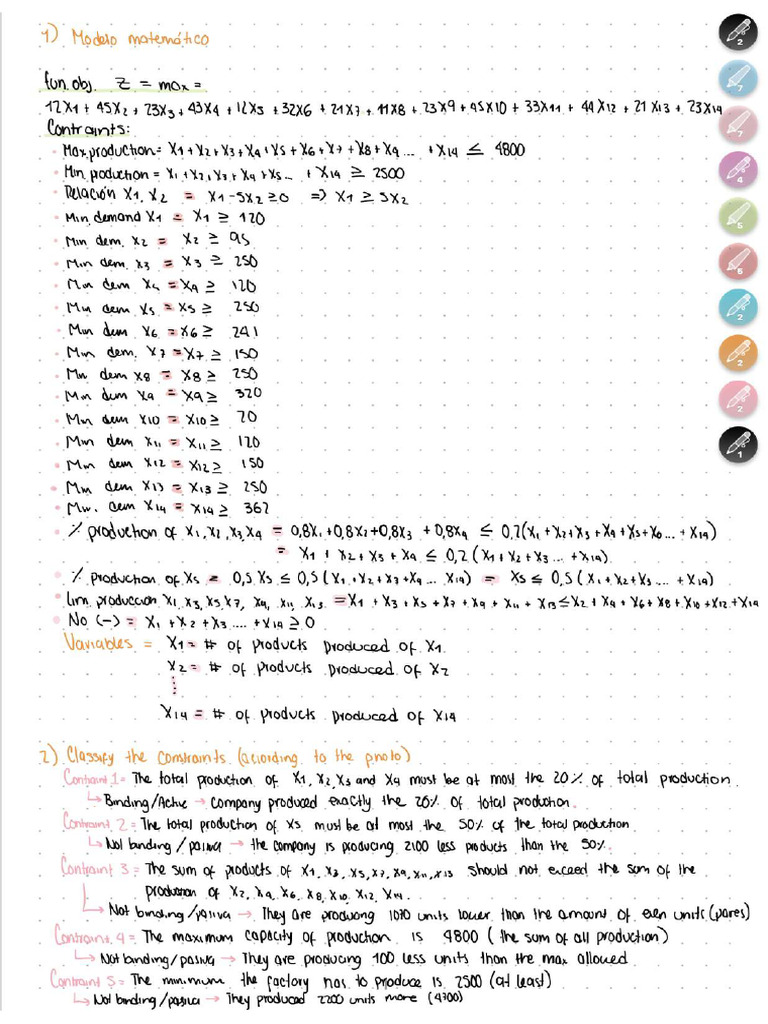 1) Modelo matemático
fun. obj. Z = max =
12X1 + 45X2 + 23X3 + 43X4 + 12X5 + 32X6 + 21X7 + 11X8 + 23X9 + 45X10 + 33X11 + 44X12 + 21X13 + 23X14
Contraints:
• Max production = X1 + X2 + X3 + X4 + X5 + X6 + X7 + X8 + X9 ... + X14 ≤ 4800
• Min production = X1 + X2 + X3 + X4 + X5 ... + X14 ≥ 2500
• Relación X1, X2 = X1 - 5X2 ≥ 0 => X1 ≥ 5X2
• Min demand X1 = X1 ≥ 120
• Min dem. X2 = X2 ≥ 95
• Min dem. X3 = X3 ≥ 250
• Min dem X4 = X4 ≥ 120
• Min dem X5 = X5 ≥ 250
• Min dem X6 = X6 ≥ 241
• Min dem. X7 = X7 ≥ 150
• Min dem X8 = X8 ≥ 250
• Min dem X9 = X9 ≥ 320
• Min dem X10 = X10 ≥ 70
• Min dem X11 = X11 ≥ 120
• Min dem X12 = X12 ≥ 150
• Min dem X13 = X13 ≥ 250
• Min. dem X14 = X14 ≥ 362
• % production of X1, X2, X3, X4 = 0,8X1 + 0,8X2 + 0,8X3 + 0,8X4 ≤ 0,2(X1 + X2 + X3 + X4 + X5 + X6 ... + X14)
= X1 + X2 + X3 + X4 ≤ 0,2 (X1 + X2 + X3 ... + X14)
• % production of X5 = 0,5 X5 ≤ 0,5 (X1 + X2 + X3 + X4 ... X14) = X5 ≤ 0,5 (X1 + X2 + X3 ... + X14)
• Lim. produccion X1, X3, X5, X7, X9, X11, X13 = X1 + X3 + X5 + X7 + X9 + X11 + X13 ≤ X2 + X4 + X6 + X8 + X10 + X12 + X14
• No (-) = X1 + X2 + X3 .... + X14 ≥ 0
Variables = X1 = # of products produced of X1.
X2 = # of products produced of X2
⋮
X14 = # of products produced of X14
2) Classify the constraints (acording to the photo)
Contraint 1 = The total production of X1, X2, X3 and X4 must be at most the 20% of total production.
↳ Binding/Active → Company produced exactly the 20% of total production.
Contraint 2 = The total production of X5 must be at most the 50% of the total production
↳ Not binding / pasiva → the company is producing 2100 less products than the 50%.
Contraint 3 = The sum of products of X1, X3, X5, X7, X9, X11, X13 should not exceed the sum of the
production of X2, X4, X6, X8, X10, X12, X14.
↳ Not binding/pasiva → They are producing 1070 units lower than the amount of even units (pares)
Contraint 4 = The maximum capacity of production is 4800 (the sum of all production)
↳ Not binding/pasiva → They are producing 100 less units than the max allowed
Contraint 5 = The minimum the factory has to produce is 2500 (at least)
↳ Not binding/pasica → They produced 2200 units more (4700)
2
7
7
4
5
5
2
2
2
1